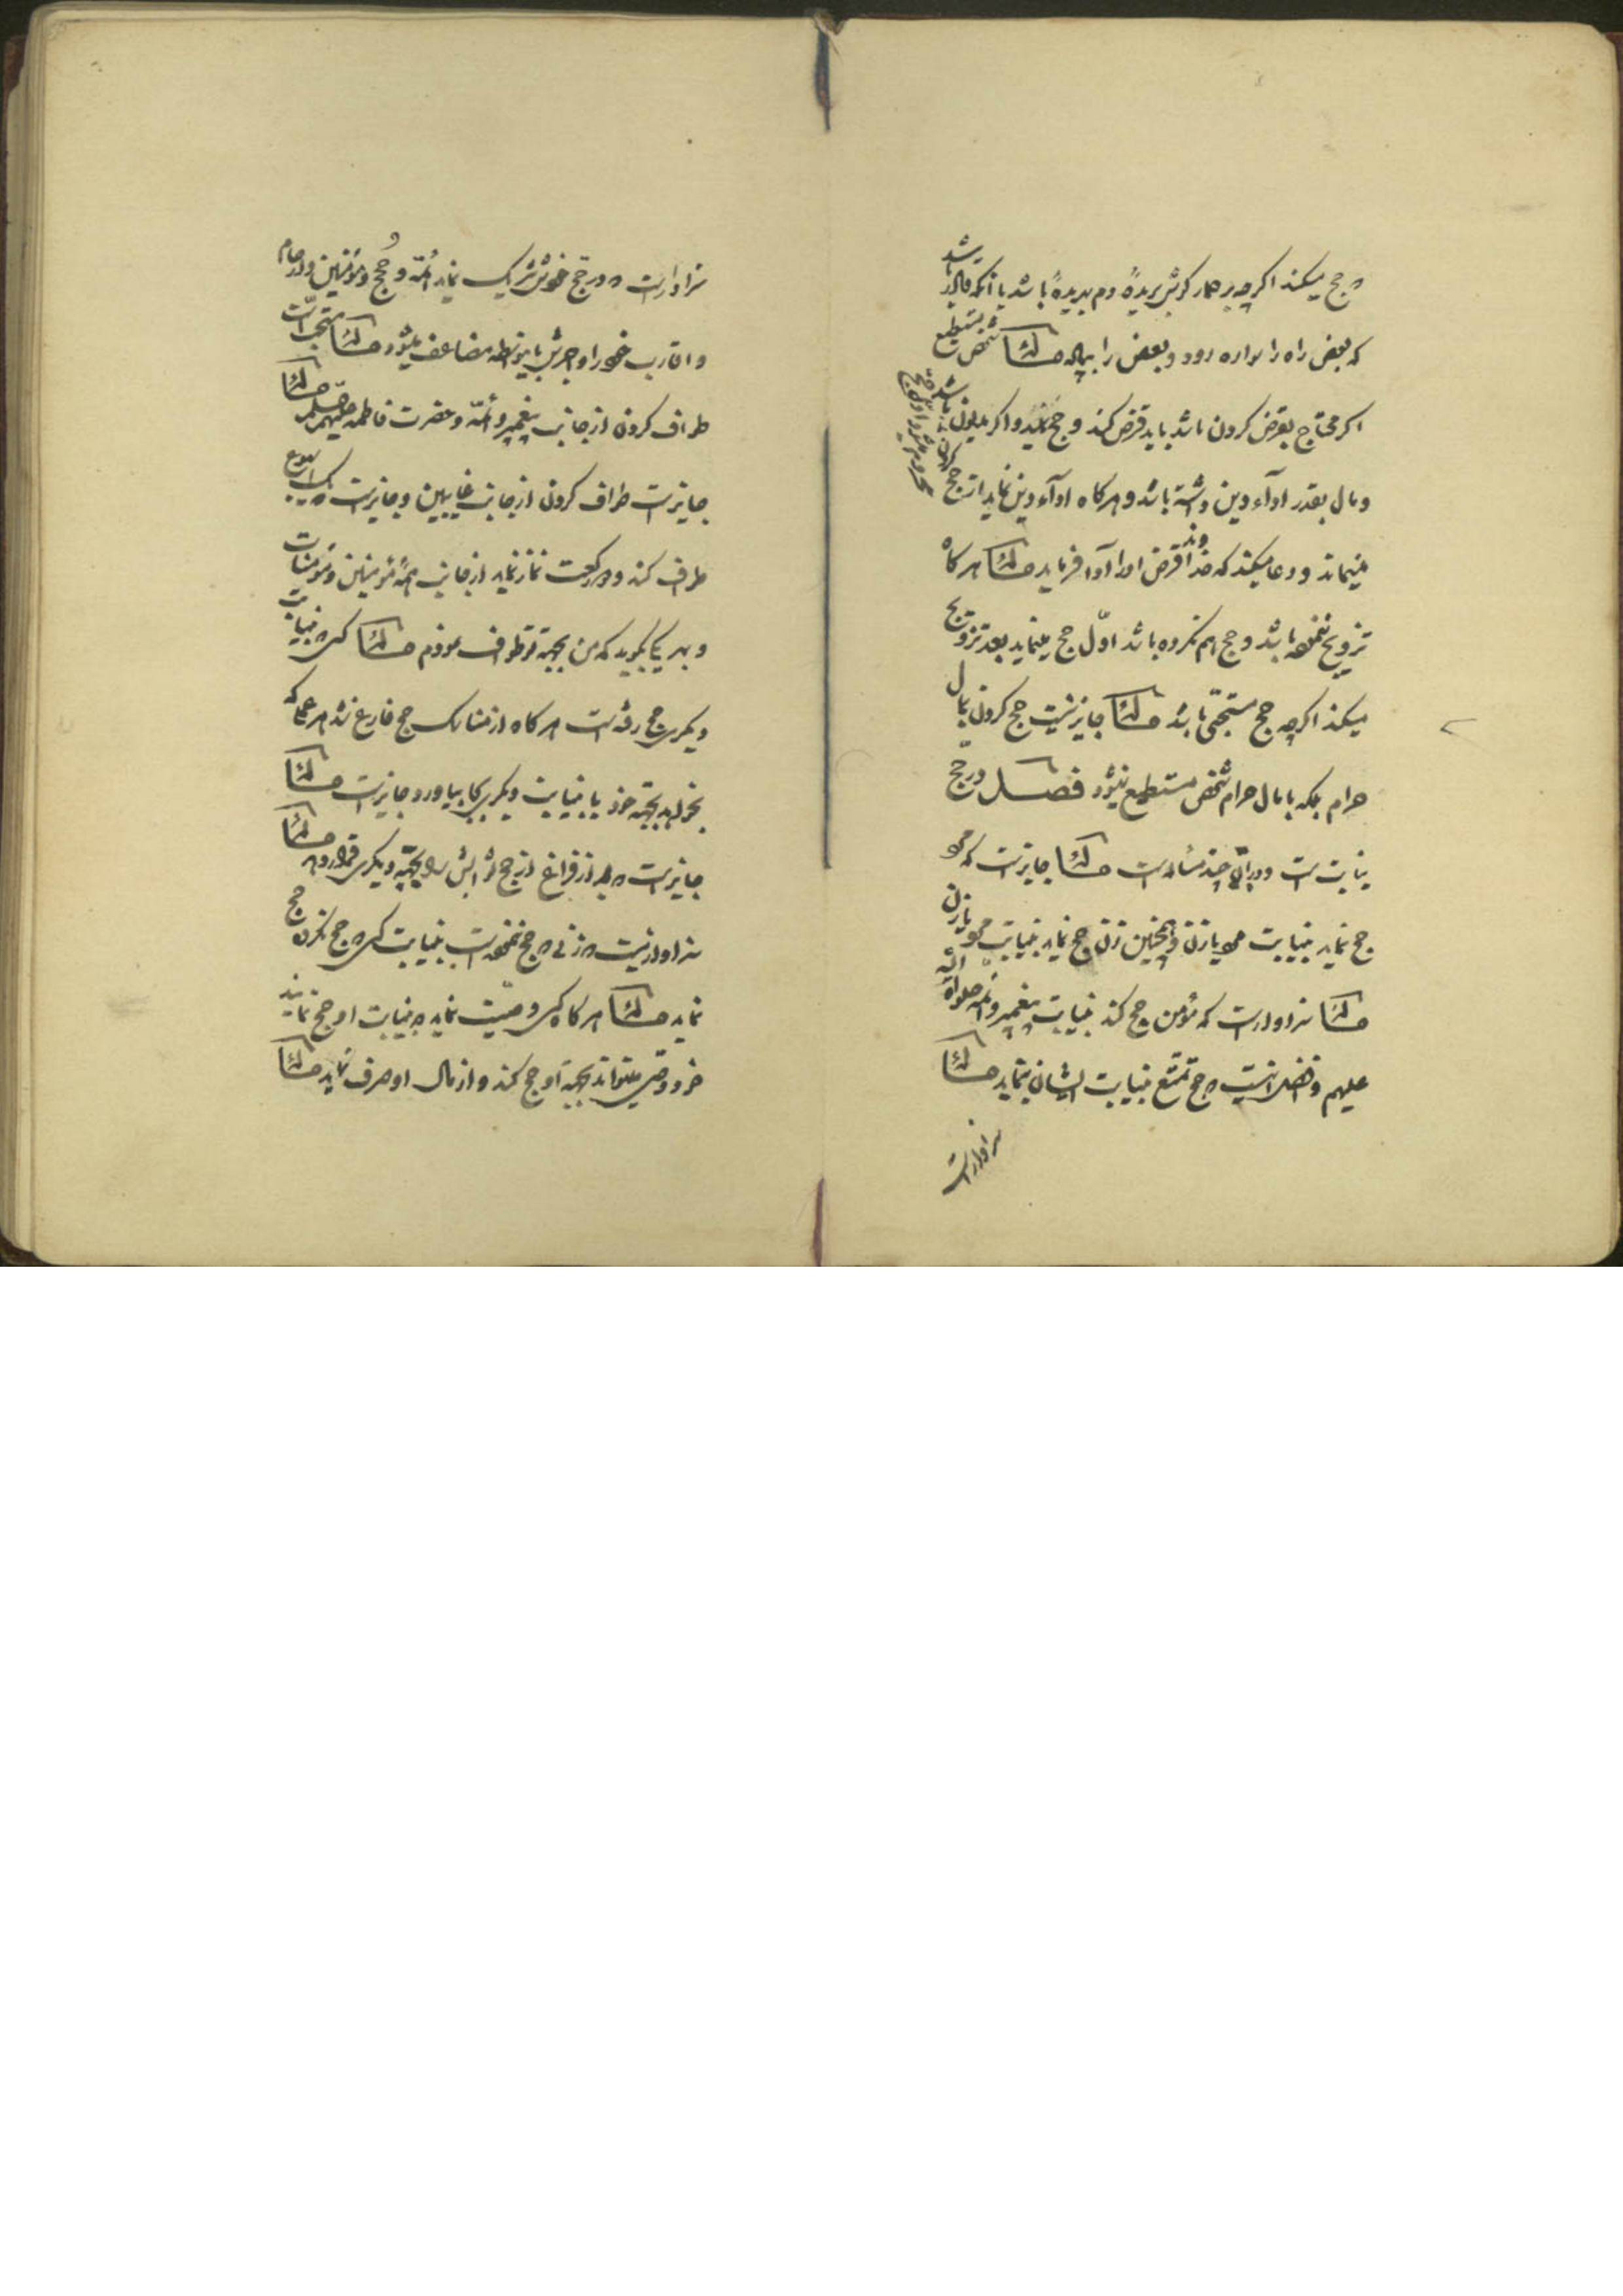 حج میکند اگرچه بر حمار گوش بریدهٔ دم بریدهٔ باشد یا آنکه قادر باشد
که بعض راه را سواره رود و بعض را پیاده مسئلة شخص مستطیع
اگر محتاج بقرض کردن باشد باید قرض کند و حج کند و اگر مدیون باشد
و مال بقدر ادآء دین داشته باشد و هرگاه ادآء دین نماید از حج
میماند و دعا میکند که خداوند قرض او را ادا فرماید مسئلة هرگاه
تزویج ننموده باشد و حج هم نکرده باشد اوّل حج مینماید بعد تزویج
میکند اگرچه حج مستحبّی باشد مسئلة جایز نیست حج کردن بمال
حرام بلکه با مال حرام شخص مستطیع نمیشود فصل در حج
نیابت است و در آن چند مسئله است مسئلة جایز است که مرد
حج نماید بنیابت مرد یا زن و همچنین زن حج نماید بنیابت مرد یا زن
مسئلة سزاوار است که مؤمن حج کند بنیابت پیغمبر و ائمه صلواة الله
علیهم و افضل اینست که حج تمتّع بنیابت ایشان بنماید مسئلة
سزاوار است
سزاوار است که در حج خودش شریک نماید ائمّه و حجج و مؤمنین و ارحام
و اقارب خود را و اجرش باینواسطه مضاعف میشود مسئلة مستحبّ است
طواف کردن از جانب پیغمبر و ائمّه و حضرت فاطمه مسئلة
جایز است طواف کردن از جانب غایبین و جایز است که یک اسبوع
طواف کند و دو رکعت نماز نماید از جانب همهٔ مؤمنین و مؤمنات
و بهر یکی بگوید که من بجهة تو طواف نمودم مسئلة کسی که بنیابت
دیگری حج رفته است هرگاه از مناسک حج فارغ شد هر عملی که
بخواهد بجهة خود یا بنیابت دیگری بجا بیاورد جایز است مسئلة
جایز است که بعد از فراغ از حج ثوابش را بجهة دیگری قرار دهد مسئلة
سزاوار نیست که زنی که حج ننموده است بنیابت کسی که حج نکرده حج
نماید مسئلة هرگاه کسی وصیّت نماید که بنیابت او حج نمایند
خود وصی میتواند بجهة او حج کند و از مال او صرف نماید مسئلة